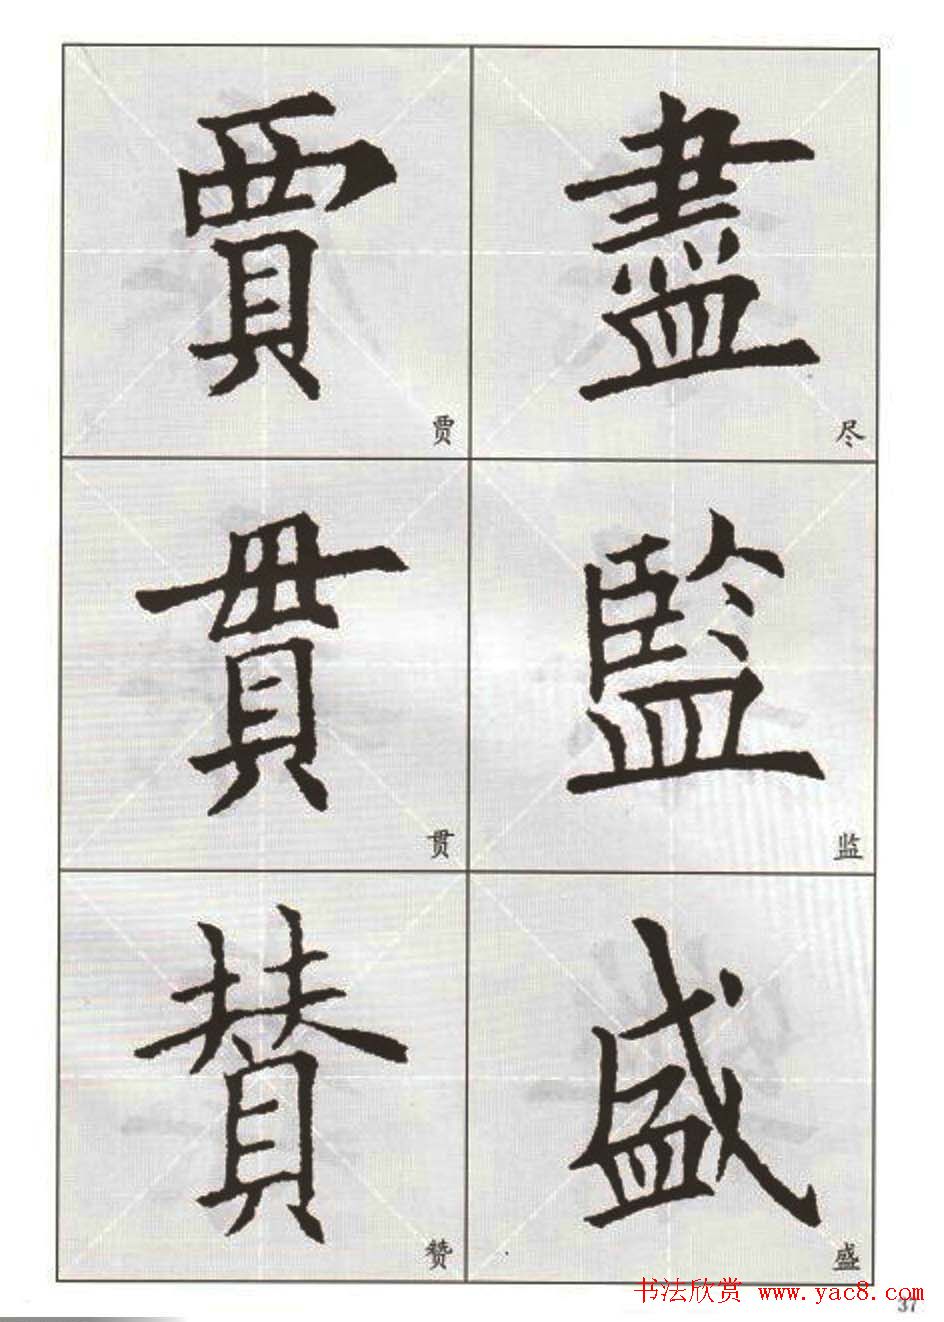 賈 盡
贾 尽
貫 監
贯 监
賛 盛
赞 盛
书法欣赏 www.yac8.com
37